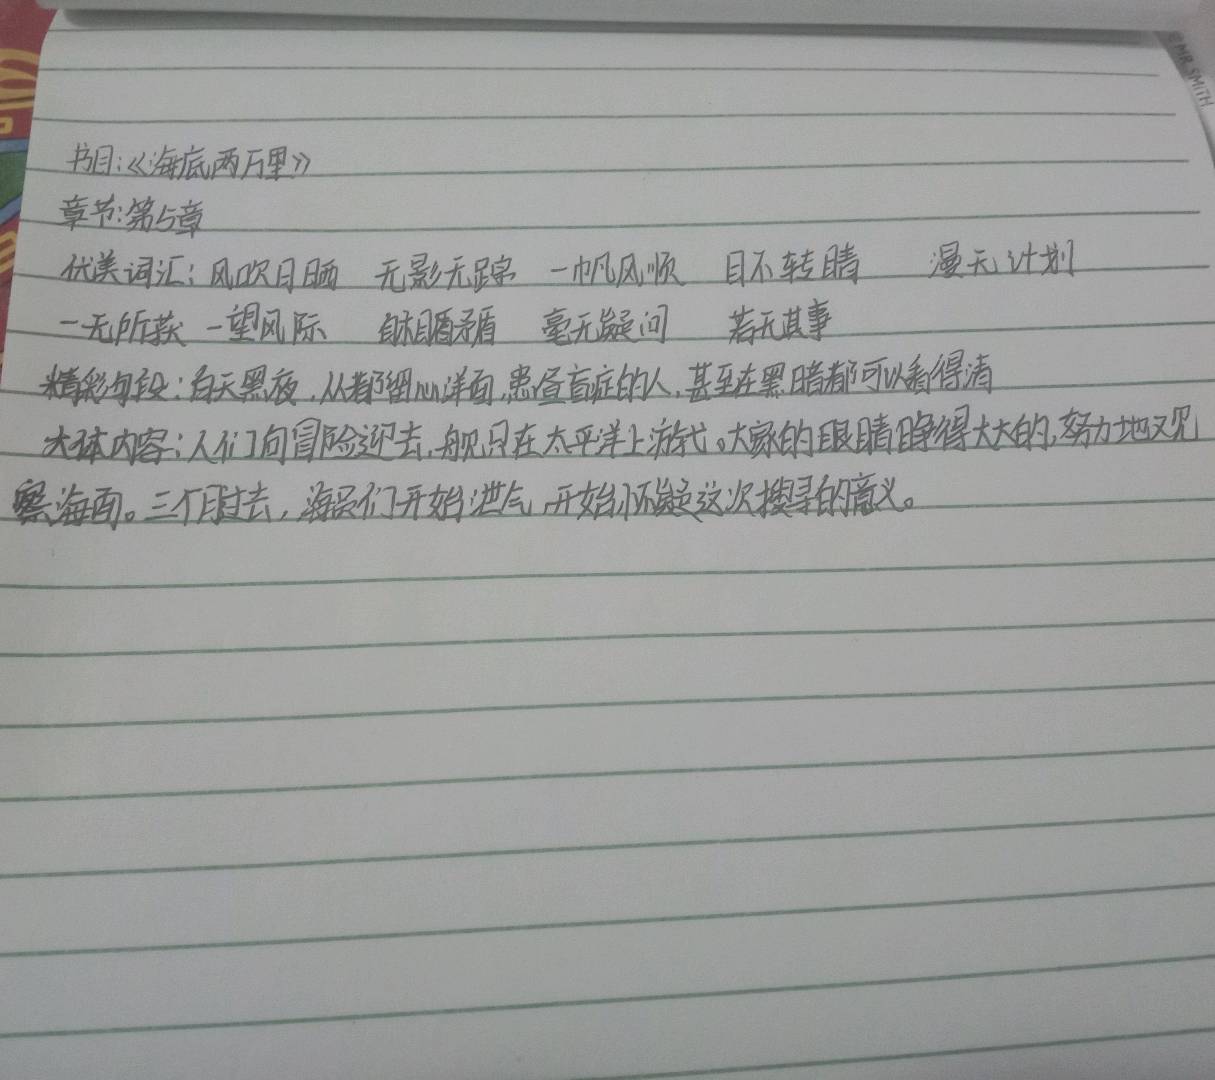 书目:《海底两万里》
章节:第5章
优美词汇:风吹日晒 无影无踪 一帆风顺 目不转睛 漫天计划
一无所获 一望风际 自相盾矛盾 毫无疑问 若无其事
精彩句段:白天黑夜,从都细心洋面,患昼盲症的人,甚至在黑暗都可以看得清
大体内容:人们向冒险迎去,舰只在太平洋上游弋。大家的眼睛睁得大大的,努力地观
察海面。三个月过去,海员们开始泄气,开始怀疑这次搜寻的意义。
MR SMITH